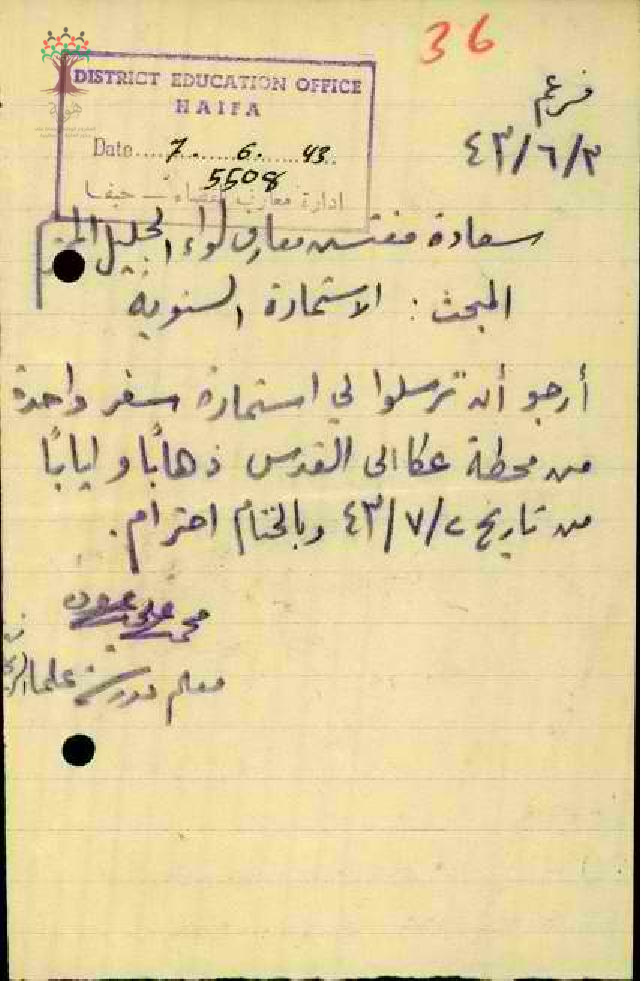 36
DISTRICT EDUCATION OFFICE
HAIFA
Date.....7......6.......43..
5508
ادارة معارف القضاء – حيفا
فرعم
٤٣/٦/٣
سعادة مفتش معارف لواء الجليل المحترم
المبحث : الاستمارة السنوية
أرجو أن ترسلوا لي استمارة سفر واحدة
من محطة عكا الى القدس ذهابًا و ايابًا
من تاريخ ٤٣/٧/٢ وبالختام احترام.
محمد علي
معلم مدرسة علما